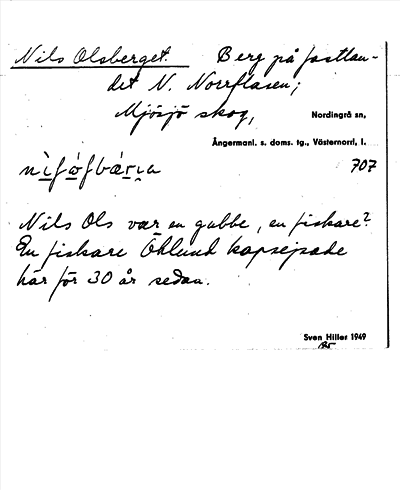 Nils Olsberget. Berg på fastlan-
det N. Norrflasen;
Mjösjö skog, Nordingrå sn,
Ångermanl. s. doms. tg., Västernorrl. l.
707
Nils Ols var en gubbe, en fiskare?
En fiskare Öhlund kapsejsade
här för 30 år sedan.
Sven Hiller 1949